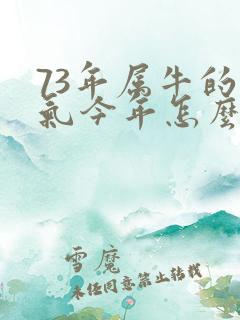 73年属牛的
氣今年怎麼
雪魔
未经同意禁止转载